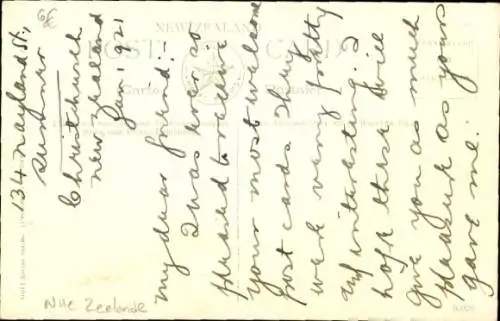 134 Nayland St.,
Sumner
Christchurch
New Zealand
Jan: 1921
My dear friend:
I was ever so
pleased to receive
your most welcome
post cards. They
were very pretty
and interesting. I
hope these will
give you as much
pleasure as yours
gave me.
NEW ZEALAND
POST CARD
Carte Postale
Nlle Zeelande